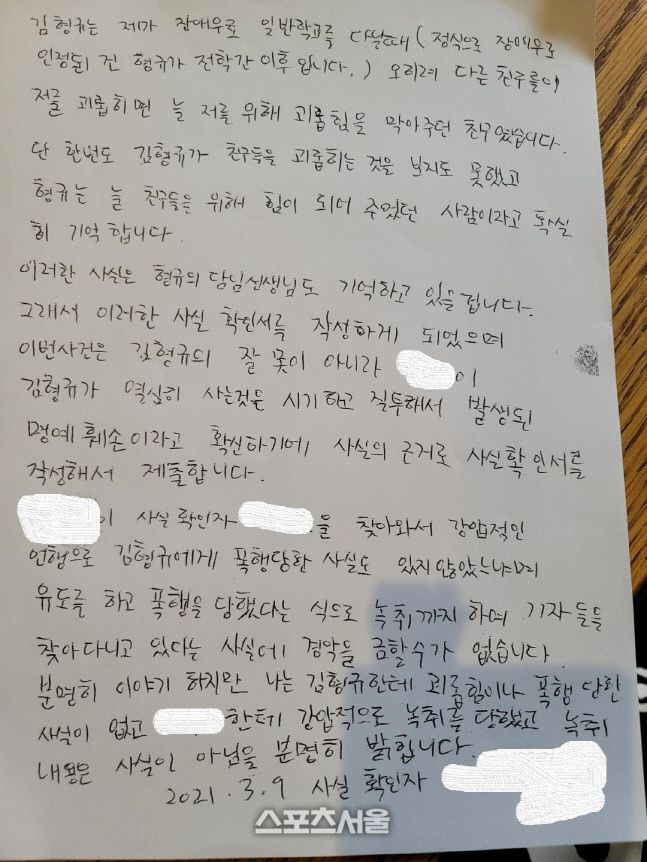 김형규는 제가 장애우로 일반학교를 다닐때 (정식으로 장애우로
인정된 건 형규가 전학간 이후 입니다.) 오히려 다른 친구들이
저를 괴롭히면 늘 저를 위해 괴롭힘을 막아주던 친구였습니다.
단 한번도 김형규가 친구들을 괴롭히는 것을 보지도 못했고
형규는 늘 친구들을 위해 힘이 되어 주었던 사람이라고 확실
히 기억합니다.
이러한 사실은 형규의 담임선생님도 기억하고 있을 겁니다.
그래서 이러한 사실 확인서를 작성하게 되었으며
이번사건은 김형규의 잘 못이 아니라 이
김형규가 열심히 사는것을 시기하고 질투해서 발생된
명예훼손이라고 확신하기에 사실의 근거로 사실확인서를
작성해서 제출합니다.
이 사실확인자 을 찾아와서 강압적인
언행으로 김형규에게 폭행당한 사실도 있지않았느냐며
유도를 하고 폭행을 당했다는 식으로 녹취까지 하며 기자들을
찾아다니고 있다는 사실에 경악을 금할수가 없습니다
분명히 이야기 하지만 나는 김형규한테 괴롭힘이나 폭행 당한
새석이 없고 한테 강압적으로 녹취를 당했고 녹취
내용은 사실이 아님을 분명히 밝힙니다.
2021.3.9 사실 확인자
스포츠서울